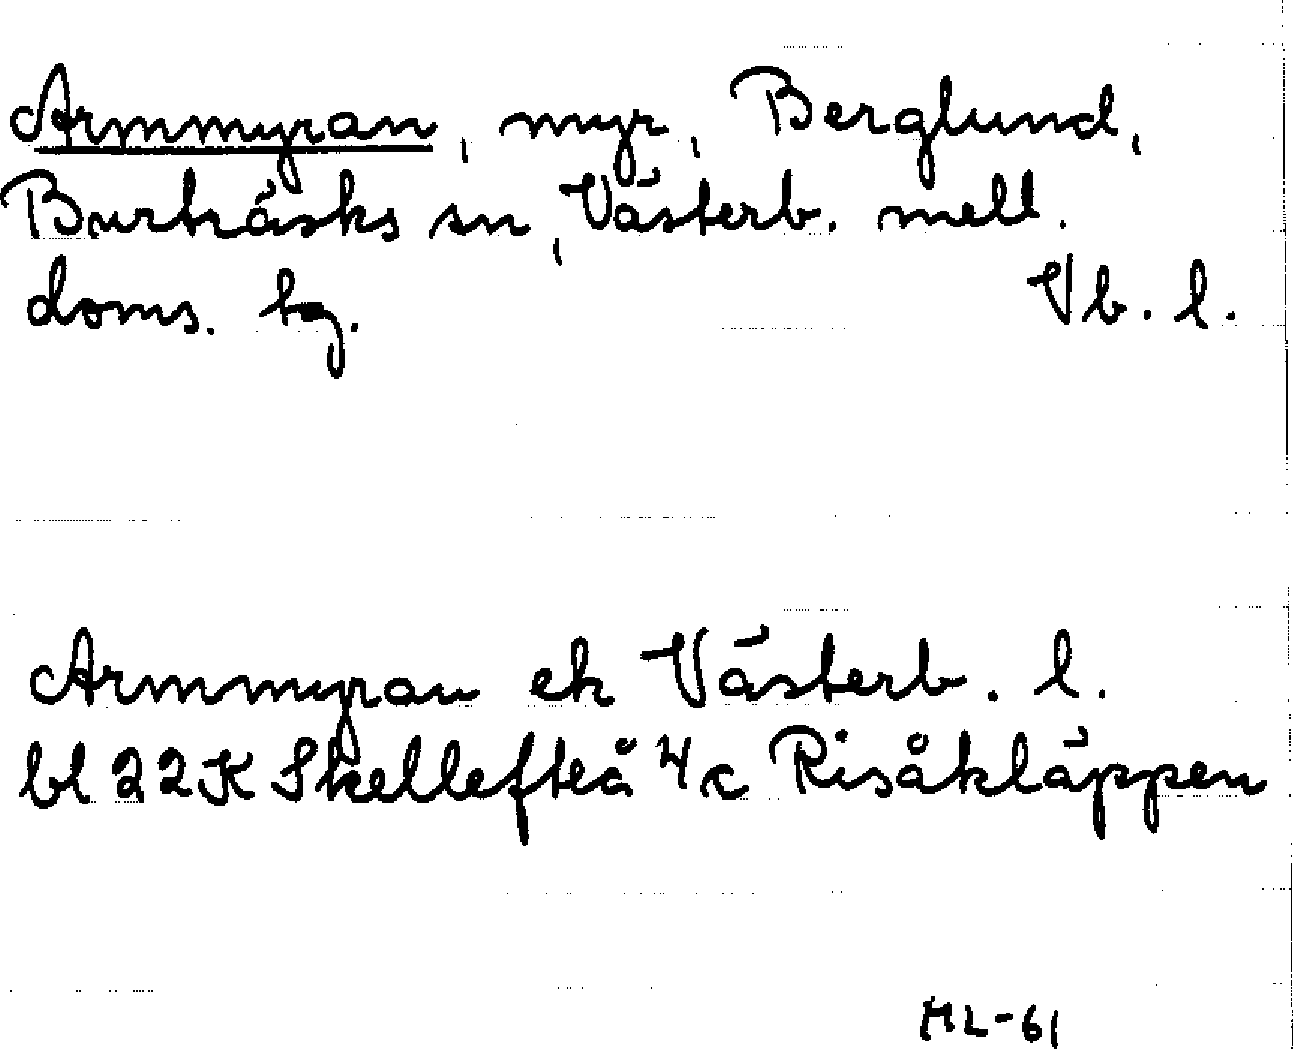 Armmyran, myr, Berglund,
Burträsks sn, Västerb. mell.
doms. hg. Vb. l.
Armmyran ek Västerb. l.
bl 22K Skellefteå 4c Risåkläppen
ML-61